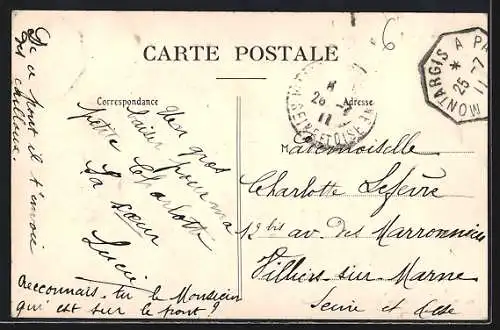 CARTE POSTALE
Correspondance
Adresse
Un gros
baiser pour ma
petite Charlotte
Ta sœur
Lucie
De ce pont il t'envoie
des cailloux.
Reconnais-tu le Monsieur
qui est sur le pont?
6
MONTARGIS A PA
*
25 -7
11
SEINE ET OISE
26
11
Mademoiselle
Charlotte Lefèvre
13 bis av des Marronniers
Villiers sur Marne
Seine et Oise